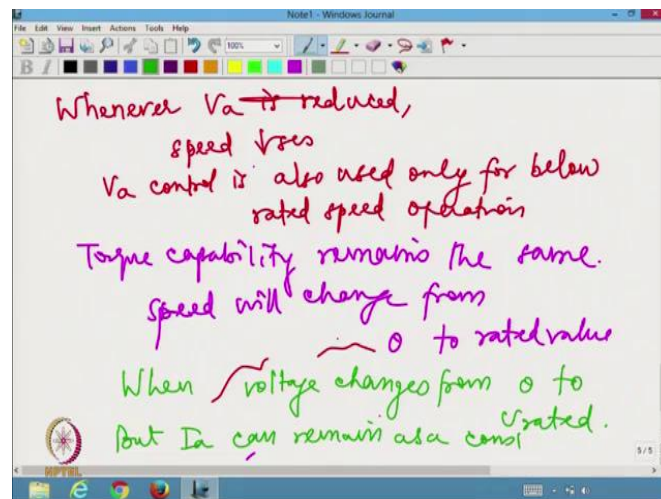 Note1 - Windows Journal
File Edit View Insert Actions Tools Help
100%
B I
Whenever Va is reduced,
speed ↓ses
Va control is also used only for below
rated speed operation
Torque capability remains the same.
speed will change from
0 to rated value
When voltage changes from 0 to
Vrated.
But Ia can remain as a const
5/5
NPTEL